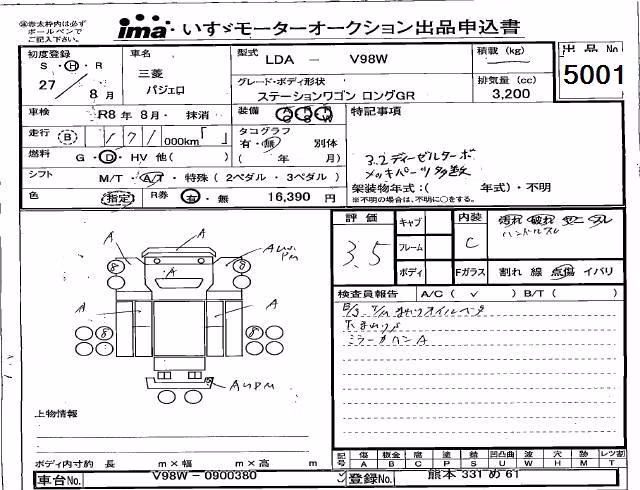 ※赤太枠内は必ず
ボールペンで
ご記入下さい。
ima いすゞモーターオークション出品申込書
初度登録
S・H・R
27
8 月
車名
三菱
パジェロ
型式
LDA － V98W
グレード・ボディ形状
ステーションワゴン ロングGR
積載 (kg)
排気量 (cc)
3,200
出品No
5001
車検
R8 年 8 月・ 抹消
装備
特記事項
走行
B
171
000km「 」
タコグラフ
有・無 別体
( 年 月)
燃料
G・D・HV 他( )
シフト
M/T・A/T・特殊 ( 2ペダル・3ペダル )
3.2ディーゼルターボ
メッキパーツ多数
架装物年式：( 年式)・不明
※不明の場合は、不明に○をする。
色
(指定)
R券
有・無
16,390 円
評価
3.5
キャブ
フレーム
ボディ
内装
C
Fガラス
汚れ 破れ
ハンドルスレ
割れ 線 点傷 イバリ
検査員報告 A/C ( ✓ ) B/T ( )
ミラーカバーA
A
A
8
8
A
A
A
8
8
上物情報
ボディ内寸約 長 m×幅 m×高 m
記号
傷 板金 腐 塗 錆 凹凸曲 波 穴 跡 レツ割
A B C P S U W H M T
車台No.
V98W－0900380
登録No.
熊本 331 め 61